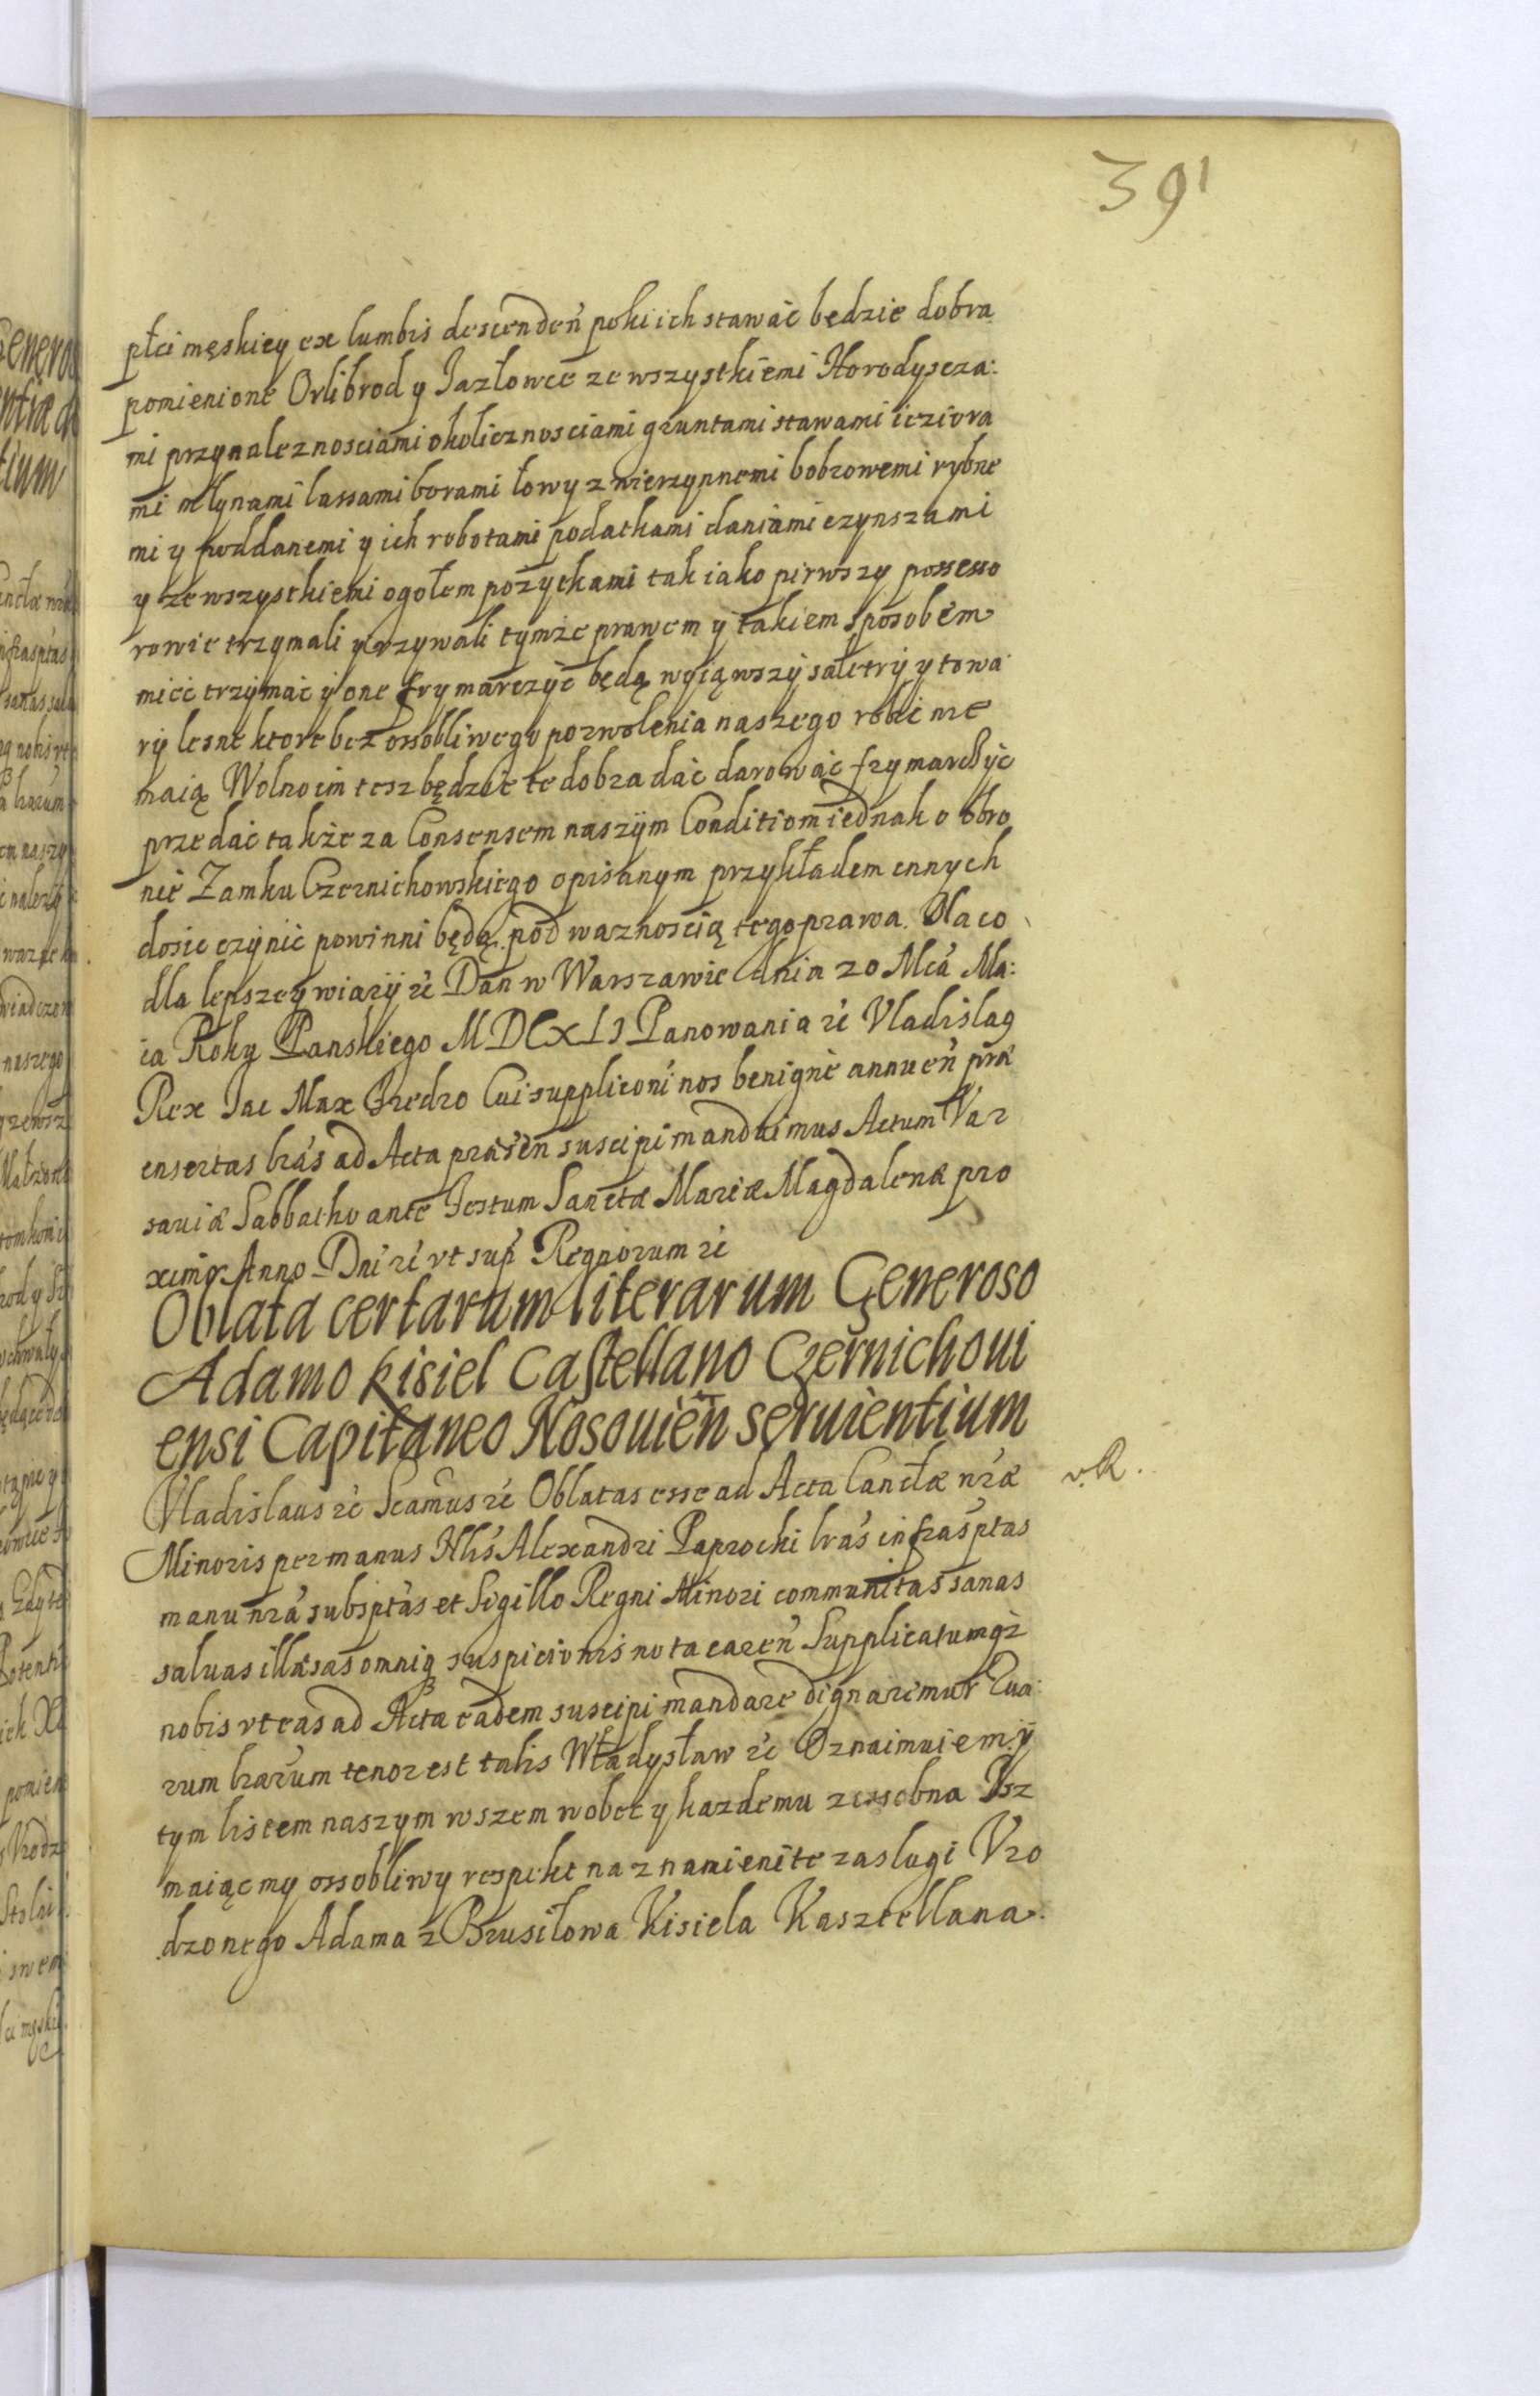 391
płci męskiey ex lumbis descenden poki ich stawać będzie dobra
pomienione Orlibrod y Jazłowce ze wszystkiemi Horodyscza:
mi przynaleznosciami okolicznosciami gruntami stawami ieziora
mi młynami lassami borami łowy zwierzynnemi bobrowemi rybne
mi y poddanemi y ich robotami podatkami daniami czynszami
y ze wszystkiemi ogołem pozytkami tak iako pirwszy possesso
rowie trzymali y vzywali tymże prawem y takiem sposobem
mieć trzymać y one frymarczyć będą wyiąwszy saletry y towa
ry lesne ktore bez ossobliwego pozwolenia naszego robić nie
maią Wolno im tesz będzie te dobra dać darować frymarchyć
przedać także za Consensem naszym Conditiom iednak o obro
nie Zamku Czernichowskiego opisanym przykładem ennych
dosic czynić powinni będą pod waznoscią tego prawa. Na co
dla lepszey wiary ec Dan w Warszawie dnia 20 Mca Ma:
ia Roku Panskiego MDCXLI Panowania ec Vladislaq
Rex Jac Max Fredro Cui suppliconi nos benigne annuen præ
ensertas lras ad Acta præsen suscipi mandaimus Actum Var
saviæ Sabbatho ante Festum Sanctæ Mariæ Magdalenæ pro
ximo Anno Dni ec vt sup Regnorum ec
Oblata certarum literarum Generoso
Adamo Kisiel Castellano Czernichoui
ensi Capitaneo Nosouien seruientium
Vladislaus ec Scamus ec Oblatas esse ad Acta Canclæ nræ
v.R.
Minoris per manus Nlis Alexandri Paprocki lras infrasptas
manu nra subsptas et Sigillo Regni Minori communitas sanas
saluas illæsas omniq suspicionis nota caren Supplicatumqz
nobis vt eas ad Acta eadem suscipi mandare dignaremur Qua
rum lrarum tenor est talis Władysław ec Oznaimuiemy
tym listem naszym wszem wobec y kazdemu zossobna Isz
maiąc my ossobliwy respekt na znamienite zasługi Vro
dzonego Adama z Brusiłowa Kisiela Kasztellana